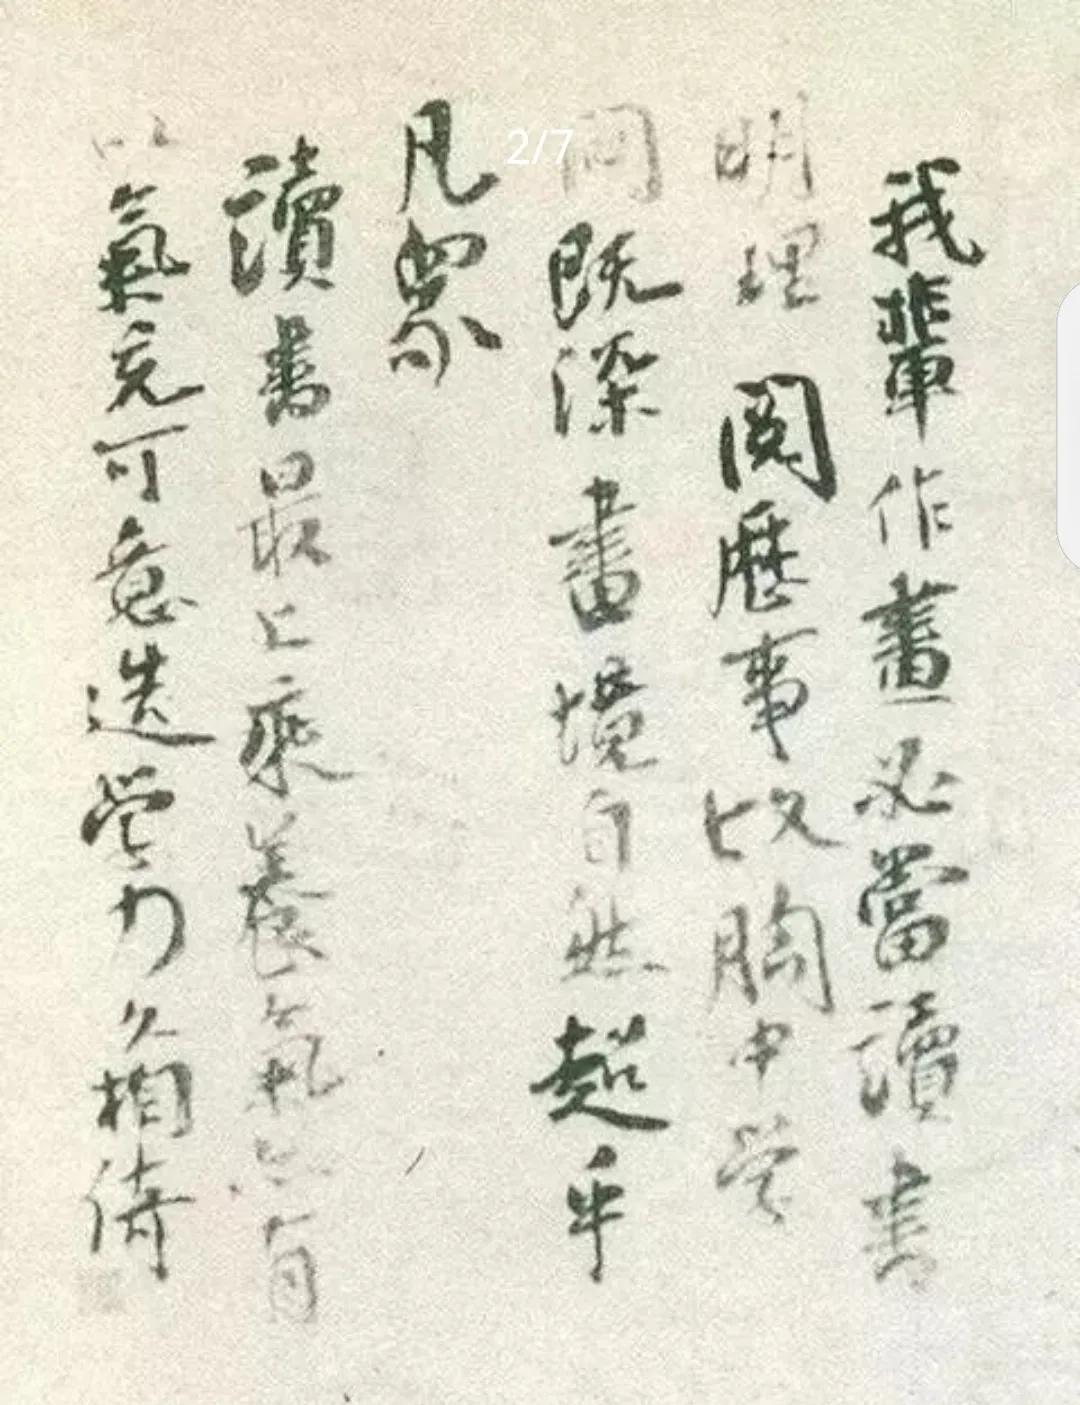 我輩作畫必當讀書
明理閱歷事故胸中學
問既深畫境自然超乎
凡眾
讀書最上乘養氣亦有
以氣充可意造學力久相倚
2/7